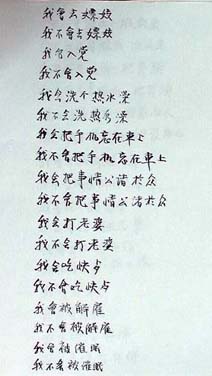 我會去嫖妓
我不會去嫖妓
我會入党
我不會入党
我会洗个热水澡
我不会洗热水澡
我会把手机忘在車上
我不會把手机忘在車上
我会把事情公諸於众
我不會把事情公諸於众
我会打老婆
我不会打老婆
我會吃快歺
我不會吃快歺
我會被解雇
我不會被解雇
我會被催眠
我不會被催眠